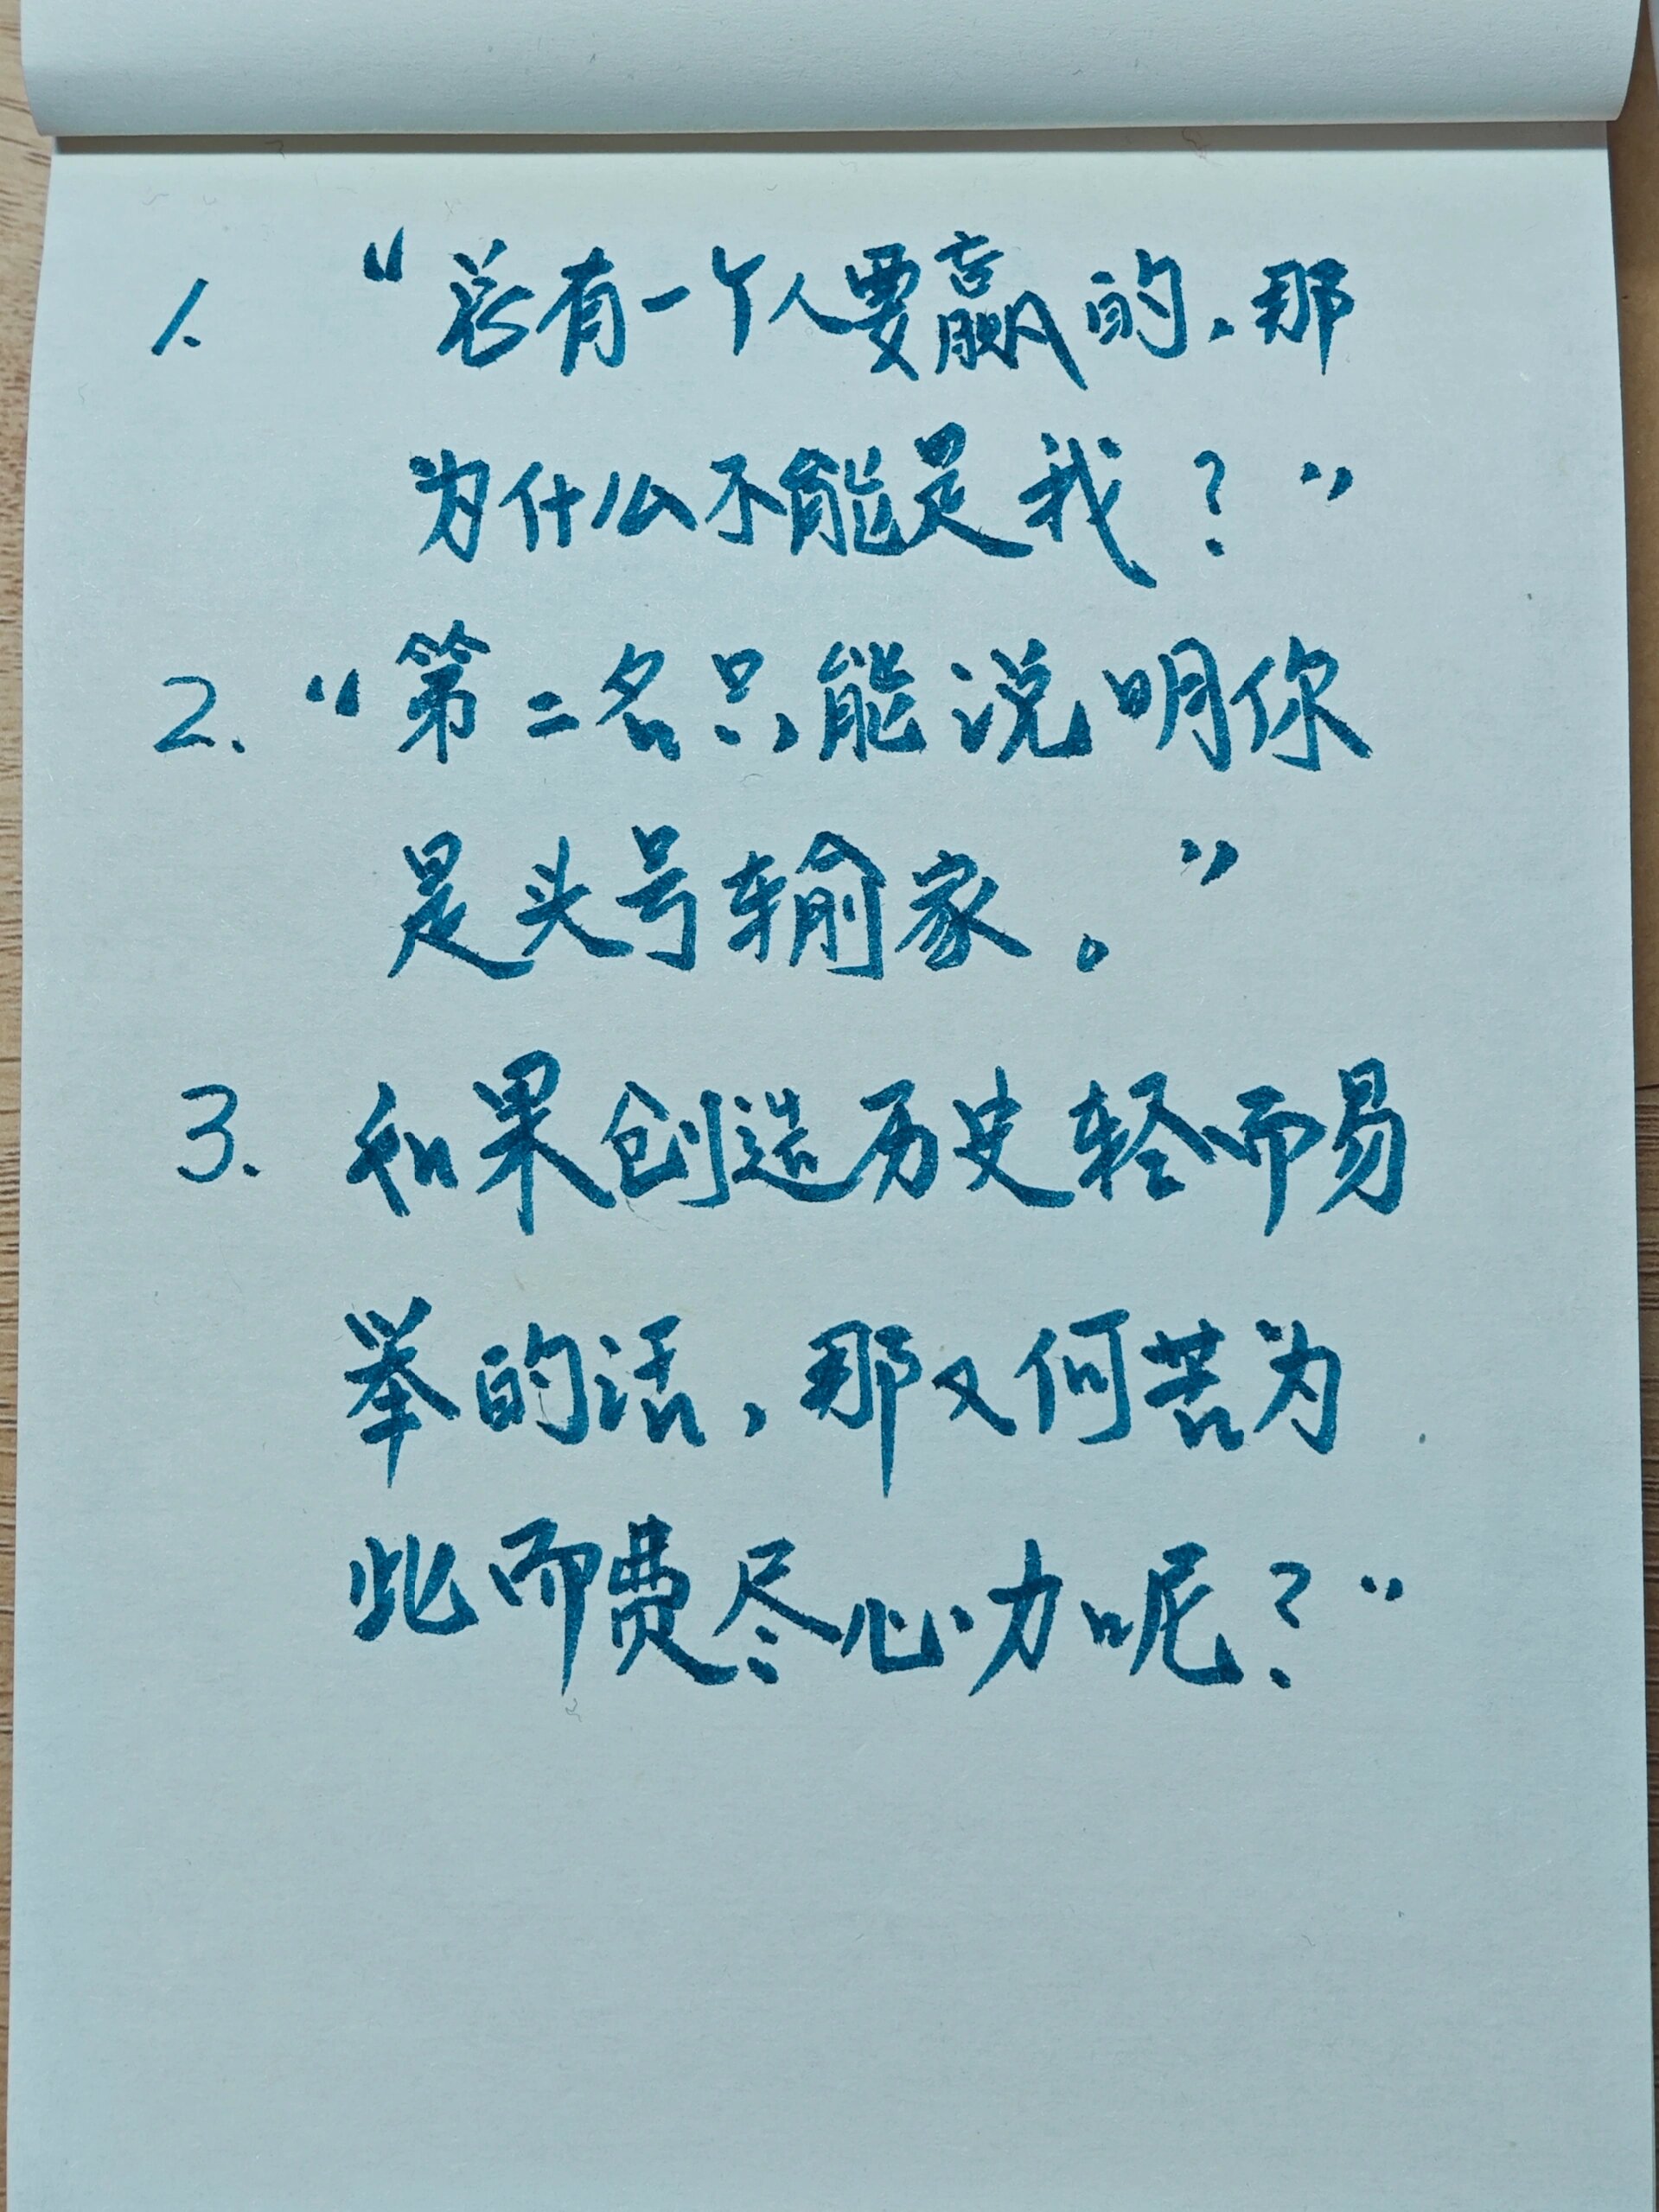 1. “总有一个人要赢的,那
为什么不能是我?”
2. “第二名只能说明你
是头号输家。”
3. 如果创造历史轻而易
举的话,那又何苦为
此而费尽心力呢?”